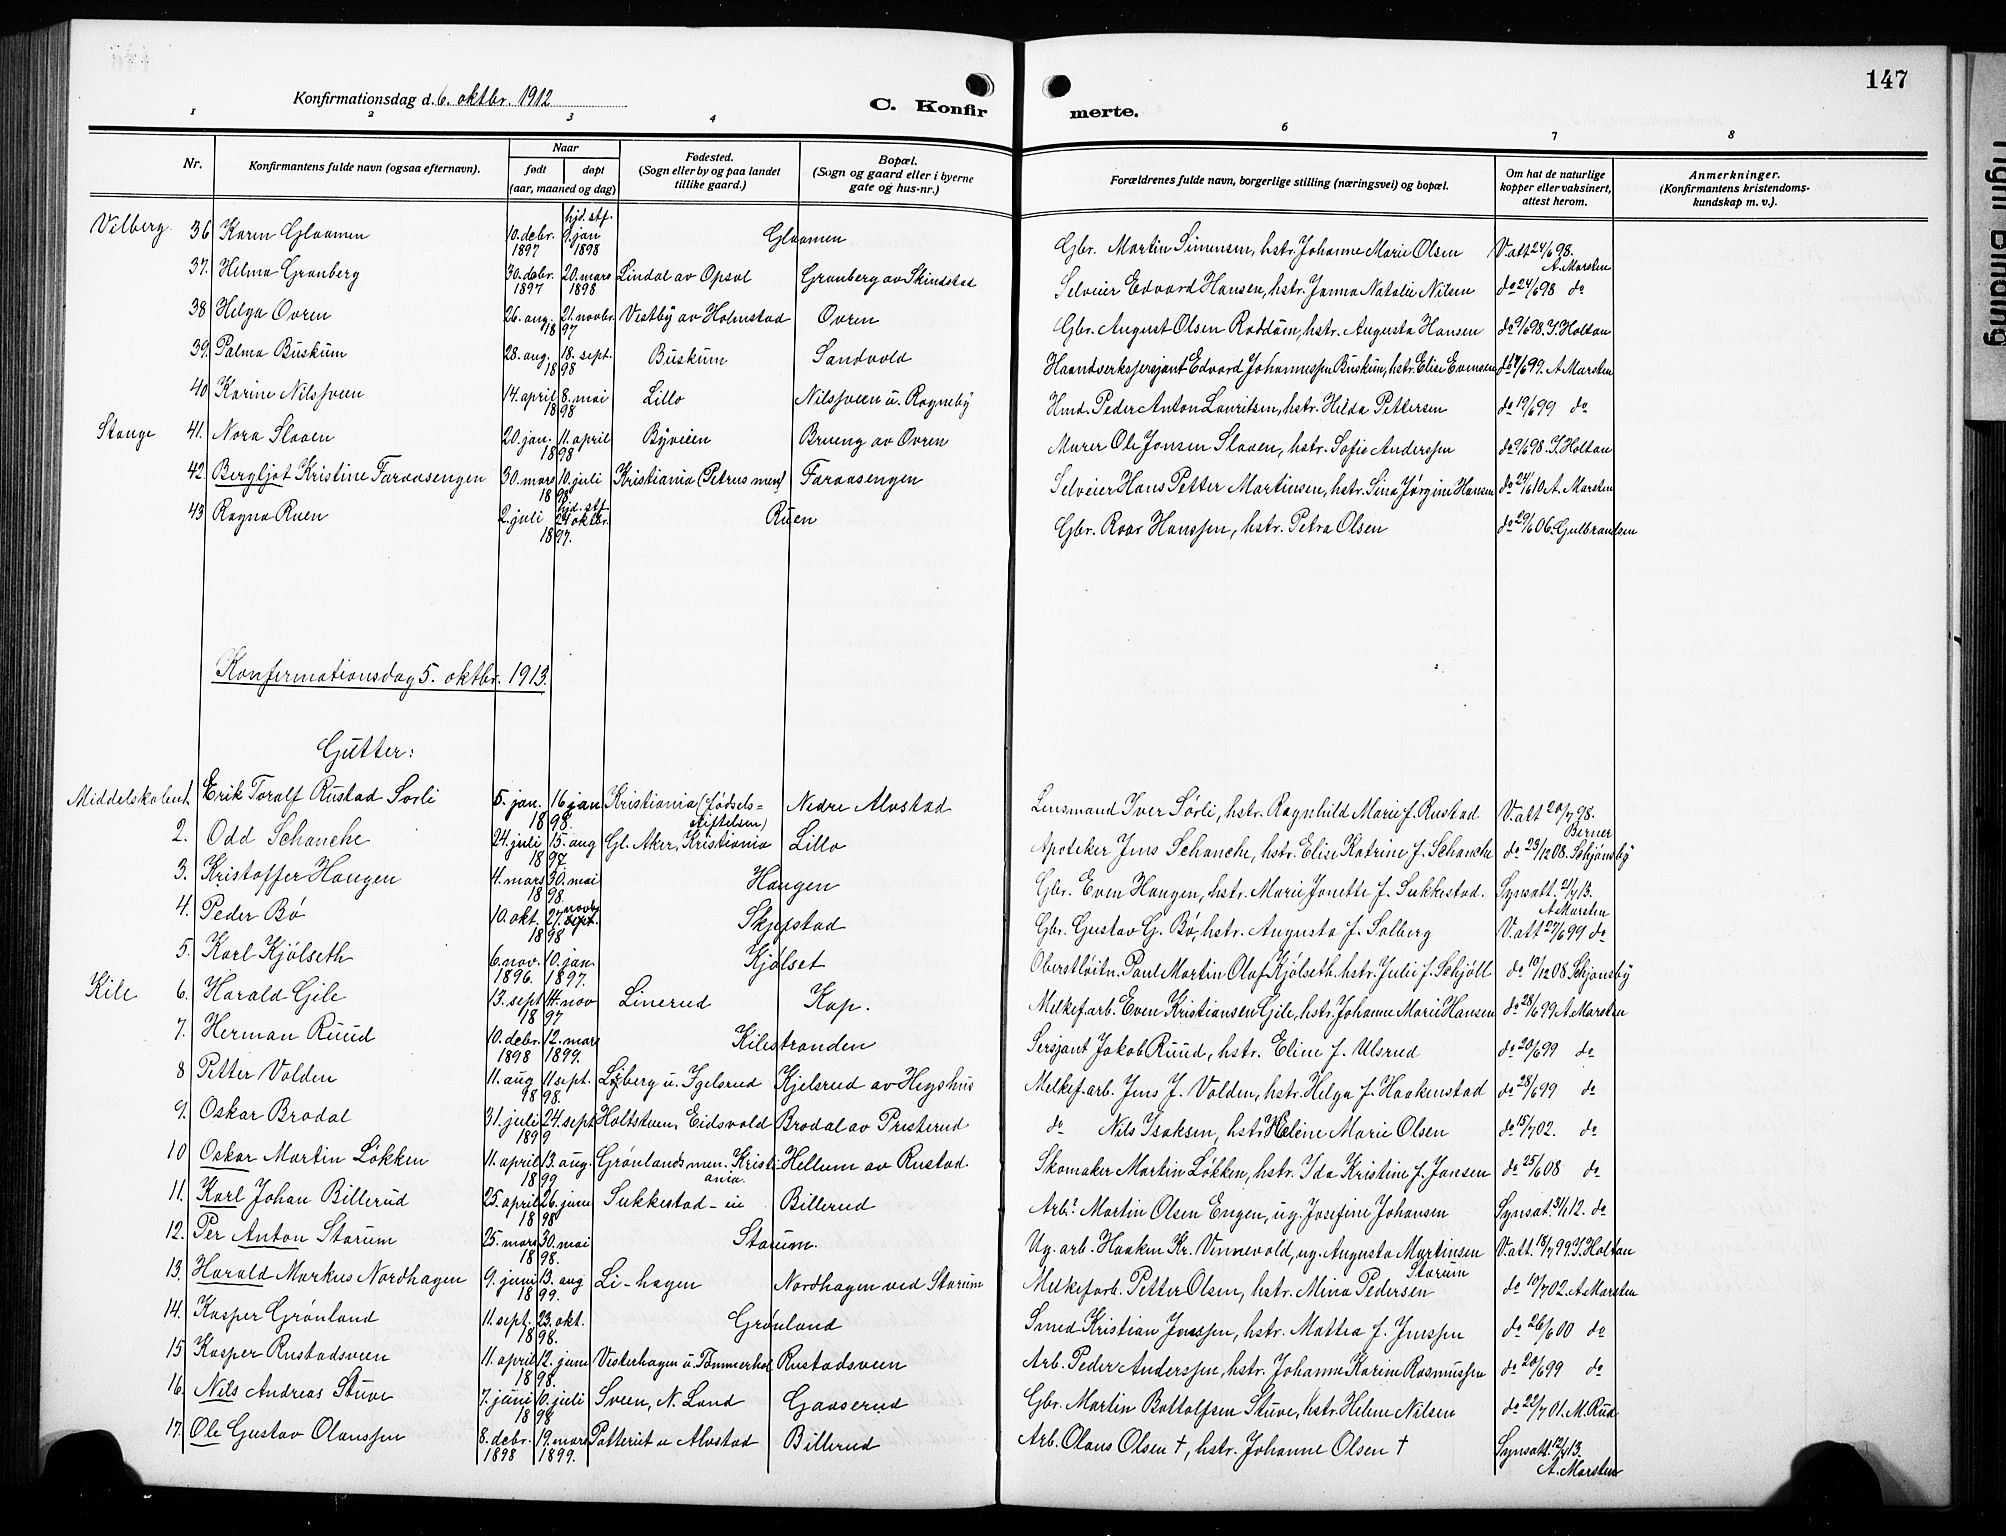 147
Konfirmationsdag d. 6. oktbr. 1912
C. Konfirmerte.
1 2 3 4 6 7 8
Nr. | Konfirmantens fulde navn (ogsaa efternavn). | Naar født døpt (aar, maaned og dag) | Fødested. (Sogn eller by og paa landet tillike gaard.) | Bopæl. (Sogn og gaard eller i byerne gate og hus-nr.) | Forældrenes fulde navn, borgerlige stilling (næringsvei) og bopæl. | Om hat de naturlige kopper eller vaksinert, attest herom. | Anmerkninger. (Konfirmantens kristendomskundskap m. v.).
Vilberg 36 Karen Glaamen 10. debr. 1897 hjd. stf. 9. jan 1898 Glaamen Gbr. Martin Simensen, hstr. Johanne Marie Olsen V. att 24/6 98. A. Marsten
37. Helma Granberg 30. debr. 1897 20. mars 1898 Lindal av Opsal Granberg av Skindstad Selveier Edvard Hansen, hstr. Janna Natalie Nilsen do 24/6 98 do
38 Helga Ovren 26. aug. 21. novbr. 1897 Vestby av Holmstad Ovren Gbr. August Olsen Roddøin, hstr. Augusta Hansen do 9/6 98. I. Holtan
39. Palma Buskum 28. aug. 18. sept. 1898 Buskum Sandvold Haandverkssersjant Edvard Johannessen Buskum, hstr. Elise Evensen do 17/6 99. A Marsten
40 Karine Nilssveen 14. april 8. mai 1898 Lillo Nilssveen u. Rogneby Hmd. Peder Anton Lauritsen, hstr. Hilda Pettersen do 19/6 99 do
Stange 41. Nora Slaaen 20. jan. 11. april 1898 Byveien Brueng av Ovren Murer Ole Jonsen Slaaen, hstr. Sofie Anderssen do 9/6 98. I. Holtan
42. Bergljot Kristine Faraasengen 30. mars 10. juli 1898 Kristiania (Petrus men) Faraasengen Selveier Hans Petter Martinsen, hstr. Sina Jørgine Hansen do 24/6 10 A. Marsten
43 Ragna Ruen 2. juli hjd. stf. 24 oktbr. 1897. Ruen Gbr. Roar Hanssen, hstr. Petra Olsen do 29/6 06. Gulbrandsen
Konfirmationsdag 5. oktbr. 1913.
Gutter:
Middelskolen 1. Erik Toralf Rustad Sørli 5. jan. 16 jan 1898. Kristiania (fødselsstiftelsen) Nedre Alvstad Lensmand Iver Sørli, hstr. Ragnhild Marie f. Rustad V. att 20/7 98. Berner
2. Odd Schanche 24. juli 15. aug 1897. Gl. Aker, Kristiania Lillo Apoteker Jens Schanche, hstr. Elise Katrine f. Schanche do 23/12 08. Schjønsby
3. Kristoffer Haugen 4. mars 30. mai 1898. Haugen Gbr. Even Haugen, hstr. Marie Jonette f. Sukkestad. Synsatt. 2/4 13. A Marsten
4. Peder Bø 10. okt. 27. novbr. sept. 1898 Skjepstad Gbr. Gustav G. Bø, hstr. Augusta f. Solberg V. att 27/6 99 do
5. Karl Kjølseth 6. nov. 1896. 10. jan. 1897. Kjølset Oberstløitn. Paul Martin Olaf Kjølseth, hstr. Julie f. Schjøll do 10/12 08 Schjønsby
Kile 6. Harald Gile 13. sept 14. nov 1897 Linerud Kap. Melkef. arb. Even Kristiansen Gile, hstr. Johanne Marie Hansen do 28/6 99 A. Marsten
7. Herman Ruud 10. debr. 1898 12. mars 1899. Kilestranden Sersjant Jakob Ruud, hstr. Eline f. Ulsrud do 20/6 99 do
8 Petter Volden 11. aug 11 sept. 98 98. Lyberg u. Igelsrud Kjelsrud av Hegshus Melkef. arb. Jens J. Volden, hstr. Helga f. Haakenstad do 28/6 99 do
9. Oskar Brodal 31. juli 24. sept 1899 Holtstuen, Eidsvold Brodal av Presterud do Nils Isaksen, hstr. Helene Marie Olsen do 15/7 02. do
10 Oskar Martin Løkken 11. april 13. aug. 1899 Grønlands men. Kristiania. Hellum av Rustad. Skomaker Martin Løkken, hstr. Ida Kristine f. Jansen do 25/6 08 do
11. Karl Johan Billerud 25. april 26. juni 1898 Sukkestad-eie Billerud Arb. Martin Olsen Engen, ug. Josefine Johansen Synsat. 31/1 12. do
12. Per Anton Starum 25. mars 30. mai 1898. Starum. Ug. arb. Haaken Kr. Vennevold, ug. Augusta Martinsen Starum V. att. 18/7 99. I. Holtan
13. Harald Markus Nordhagen 9. juni 13. aug 1899. Li-hagen Nordhagen ved Starum Melkef. arb. Petter Olsen, hstr. Mina Pedersen do 10/7 02. A. Marsten
14. Kasper Grønland 11. sept. 23. okt. 1898. Grønland Smed Kristian Jenssen, hstr. Mattea f. Jenssen do 26/6 00 do
15 Kasper Rustadsveen 11. april 12. juni 1898. Vesterhagen u. Tømmerhol Rustadsveen Arb. Peder Anderssen, hstr. Johanne Karine Rasmussen do 20/6 99 do
16. Nils Andreas Stuve 7. juni 10. juli 1898 Sveen, N. Land Gaaserud Gbr. Martin Bottolfsen Stuve, hstr. Helene Nilsen do 22/7 01. M. Rud
17. Ole Gustav Olaussen 8. debr. 1898 19. mars 1899. Potterut u Alvstad Billerud Arb. Olaus Olsen †, hstr. Johanne Olsen † Synsatt. 12/4 13. A. Marsten